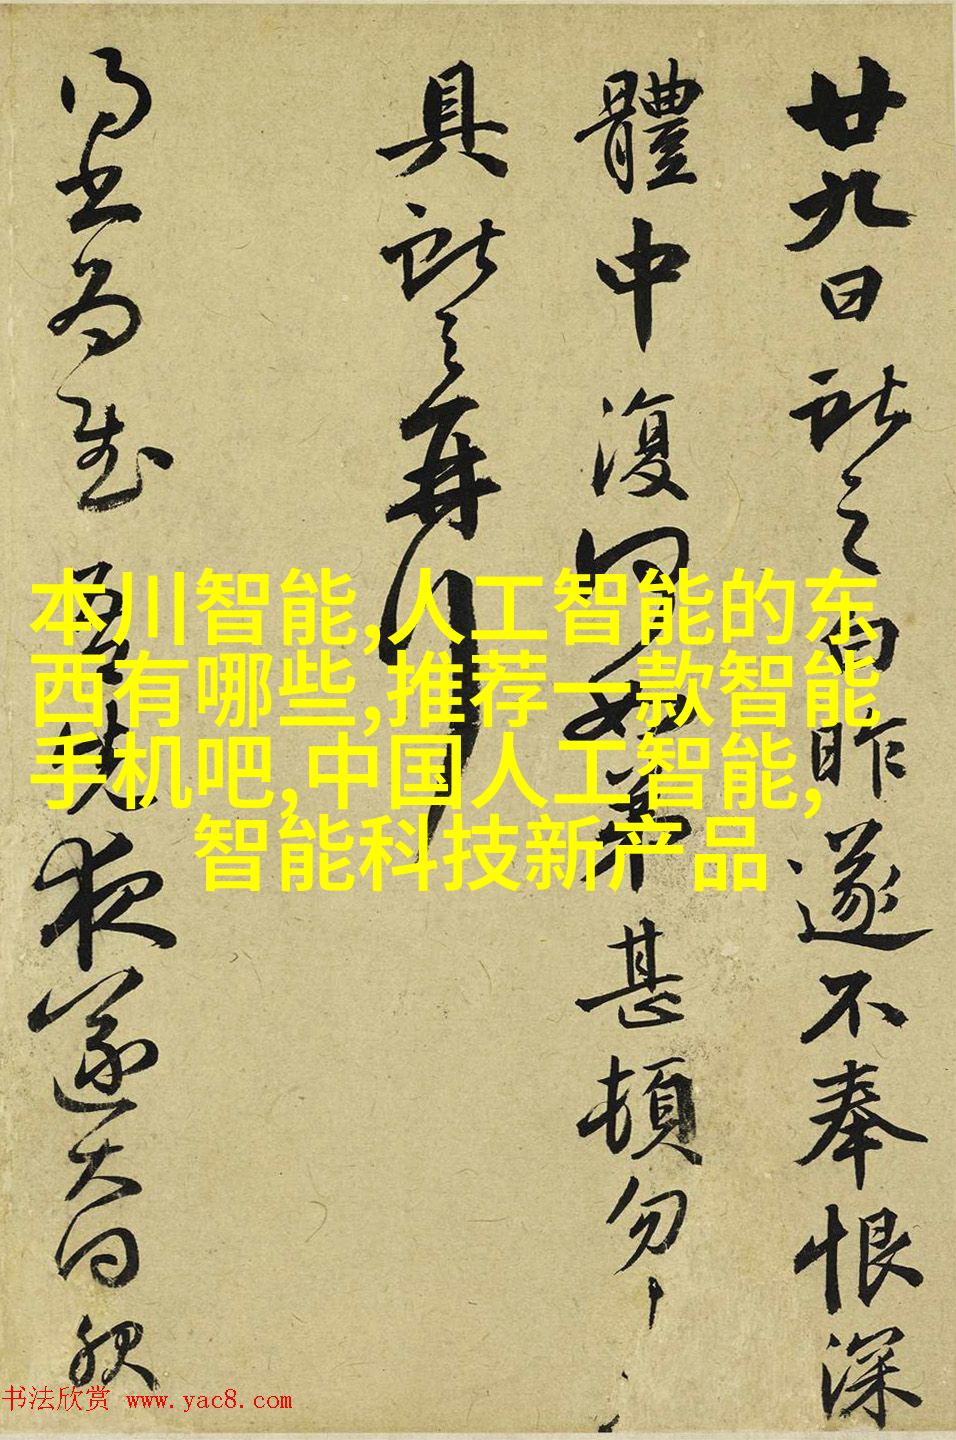 廿九日獻之白昨遂不奉恨深
體中復何如弟甚頓匆匆
具獻之再拜
夜遂大
本川智能,人工智能的东
西有哪些,推荐一款智能
手机吧,中国人工智能,
智能科技新产品
书法欣赏 www.yac8.com